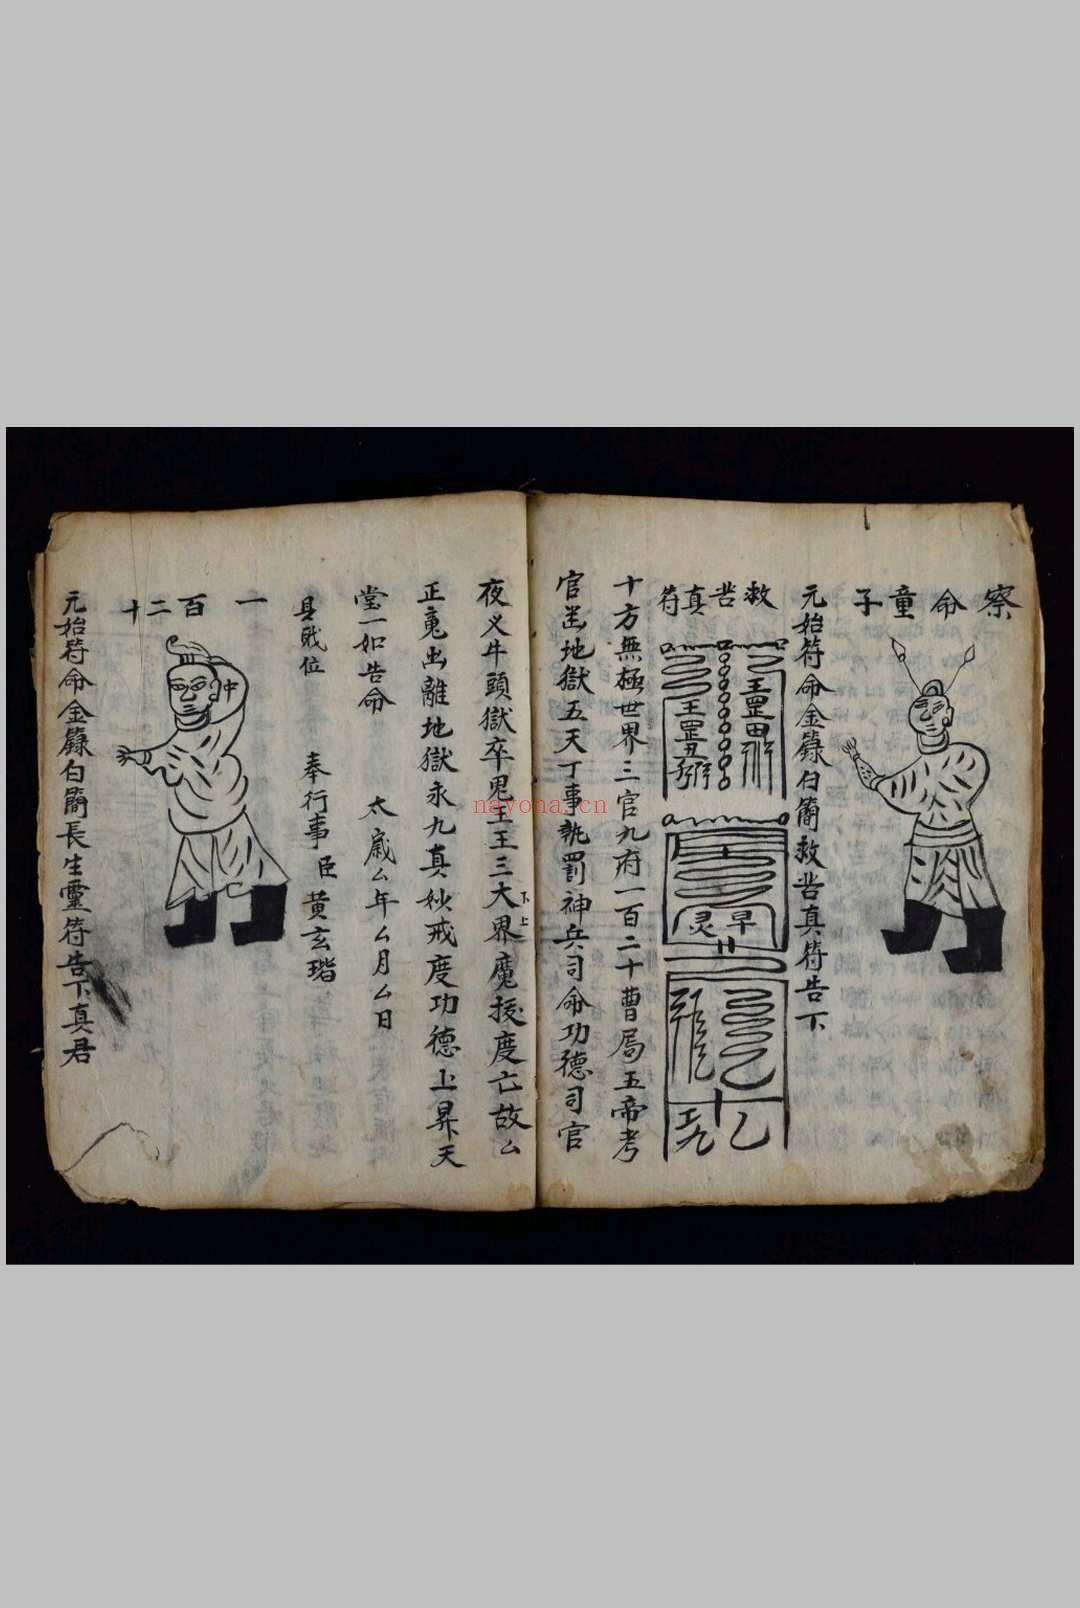 察命童子
元始符命金籙白簡救苦真符告下
救苦真符
十方無極世界三官九府一百二十曹局五帝考
官羗地獄五天丁事執罰神兵司命功德司官
夜义牛頭獄卒鬼王王三大界魔授度亡故厶
下上
正䰟出離地獄永九真妙戒度功德上昇天
堂一如告命 太歲厶年厶月厶日
具戝位 奉行事臣黄玄瑎
一百二十
元始符命金籙白簡長生靈符告下真君
nayona.cn